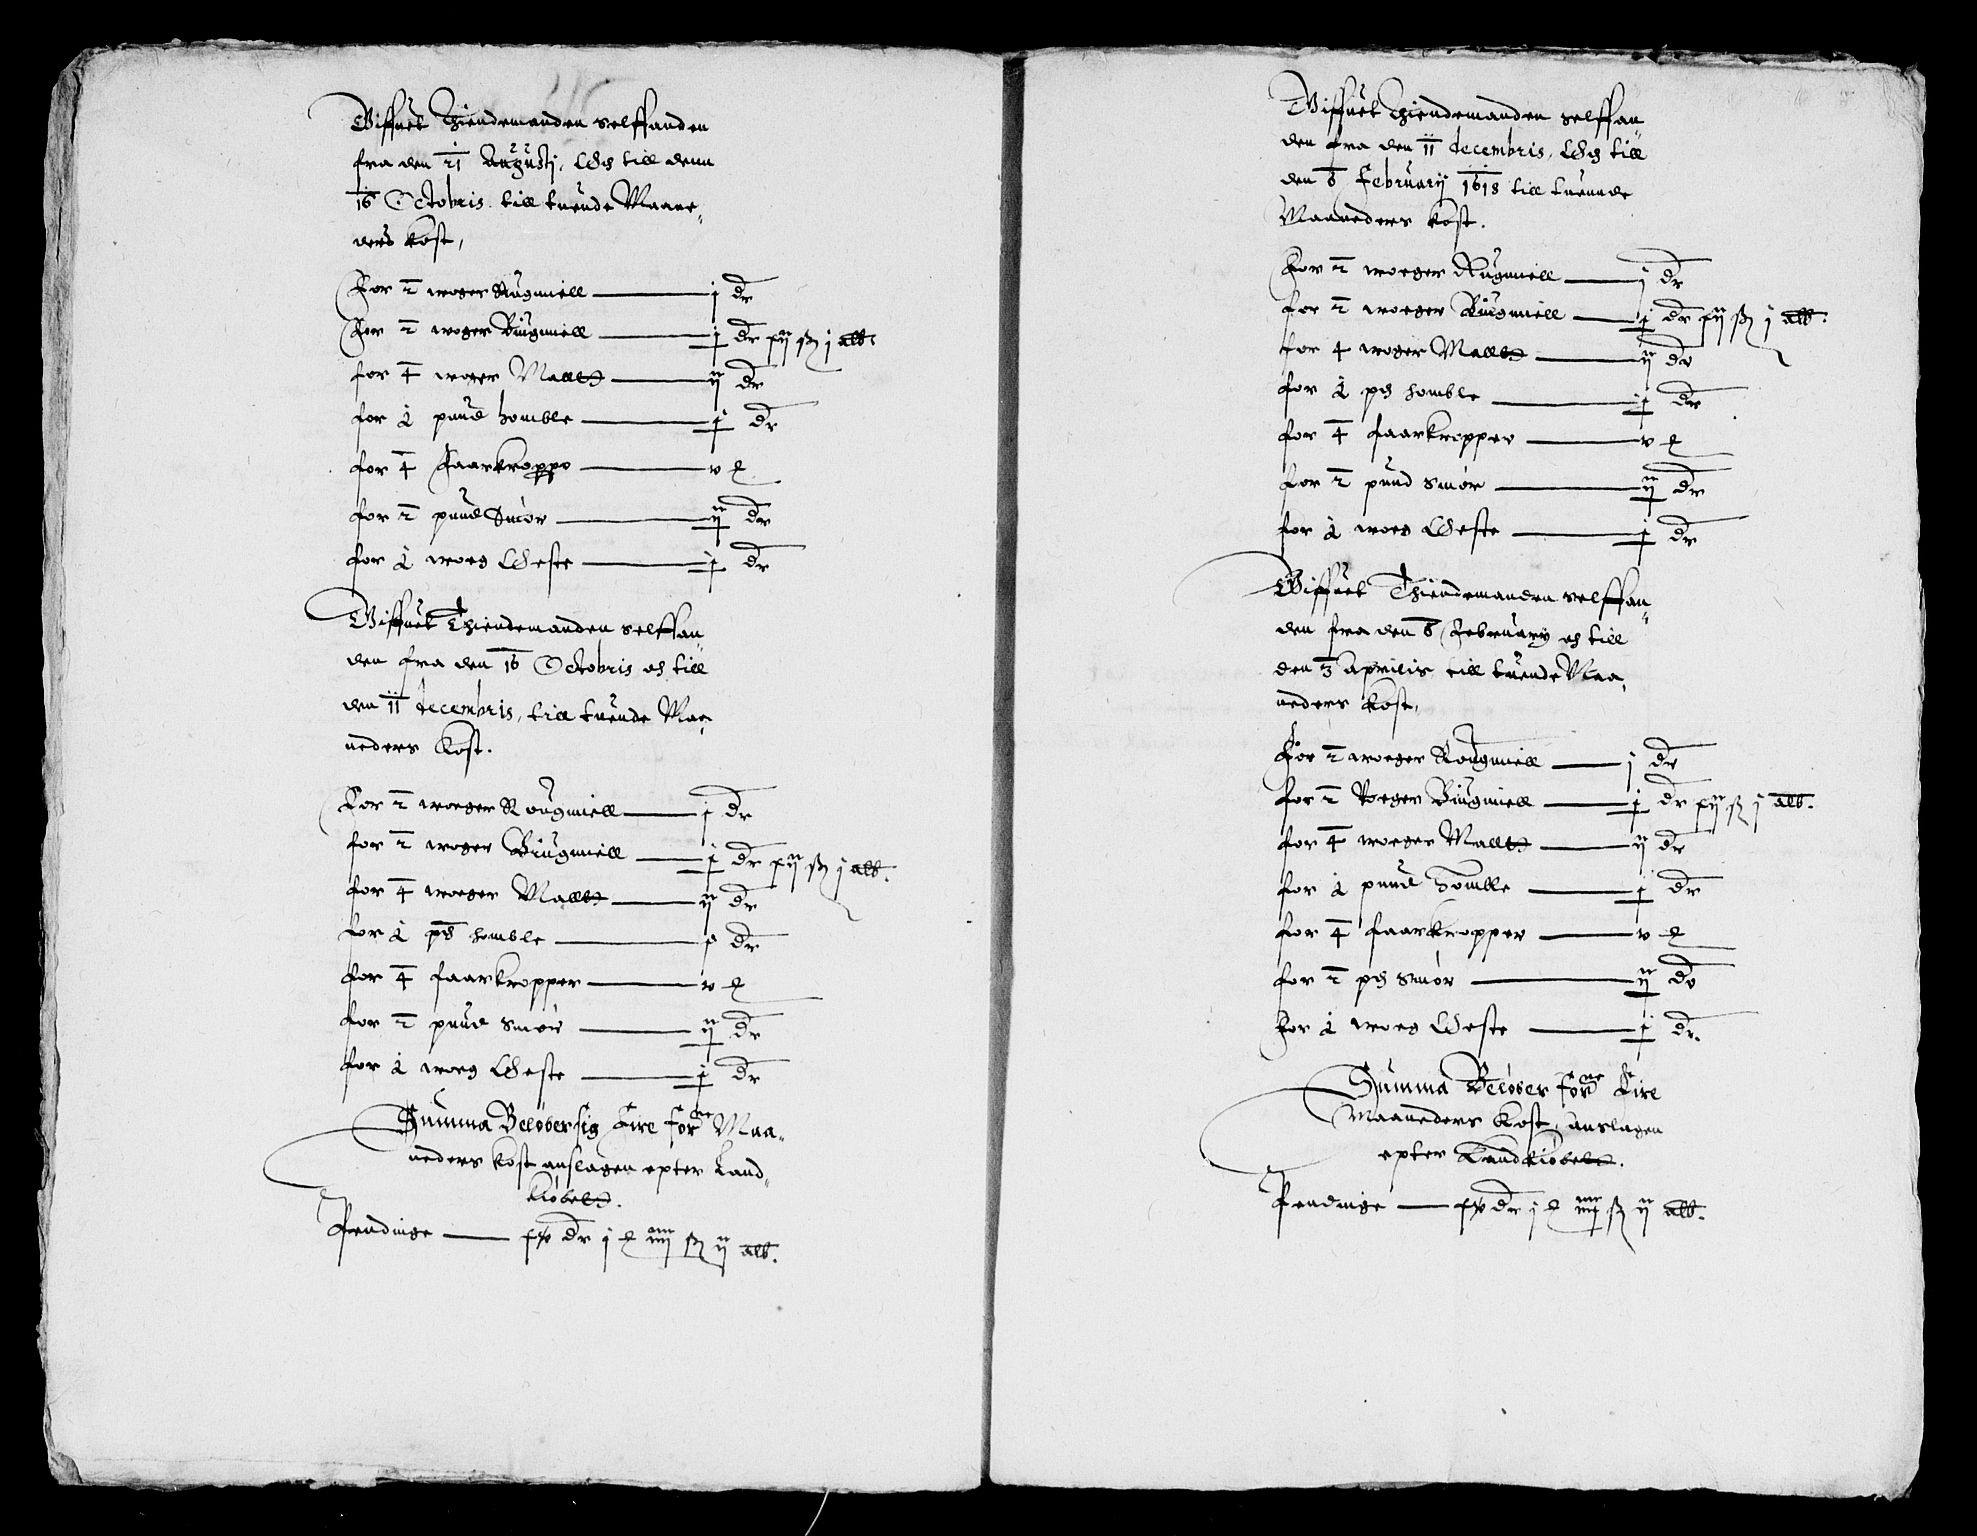 Wiffuet Thiendemanden selffanden
fra den 21 Augustj, Och till denn
16 Octobris till tuende Maane,
ders kost,
For 2 woger Rugmiell — j dr
For 2 woger Biugmiell — j dr xij ß j alb.
for 4 woger Mallt — ij dr
for 1 pund homble — j dr
for 4 Faarkroppe — v
for 2 pund Smör — ij dr
for 1 woeg Oeste — j dr
Wiffuet Thiendemanden selffan
den fra den 16 Octobris oc till
den 11 decembris, till tuende Maa,
neders Kost.
For 2 woeger Rougmiell — j dr
for 2 woger Biugmiell — j dr xij ß j alb.
for 4 woeger Mallt — ij dr
for 1 pd homble — j dr
for 4 faarkropper — v
for 2 pund smör — ij dr
for 1 woeg Oeste — j dr
Summa Beløber sig Fire forne Maa,
neders kost anslagen epter Land,
kiøbet.
Pendinge — dr j iiij ß ij alb.
Wiffuet Thiendemanden selffan
den fra den 11 decembris, Och till
den 6 February 1618 till tuennde
Maaneders kost.
For 2 woeger Rugmiell — j dr
for 2 woeger Biugmiell — j dr xij ß j alb.
for 4 woger Mallt — ij dr
for 1 pd homble — j dr
for 4 faarkropper — v
for 2 pund smör — ij dr
for 1 woeg Oeste — j dr
Wiffuet Thiendemanden selffan
den fra den 6 February oc till
den 3 Aprilis till tuende Maa,
neders kost,
For 2 woeger Rougmiell — j dr
for 2 Voeger Biugmiell — j dr xij ß j alb.
for 4 woeger Mallt — ij dr
for 1 pund Homble — j dr
for 4 faarkropper — v
for 2 pd smör — ij dr
For 1 woeg Oeste — j dr.
Summa Beløber forne Fire
Maaneders Kost, anslagen
epter Landkiøbet.
Pendinge — dr j iiij ß ij alb.